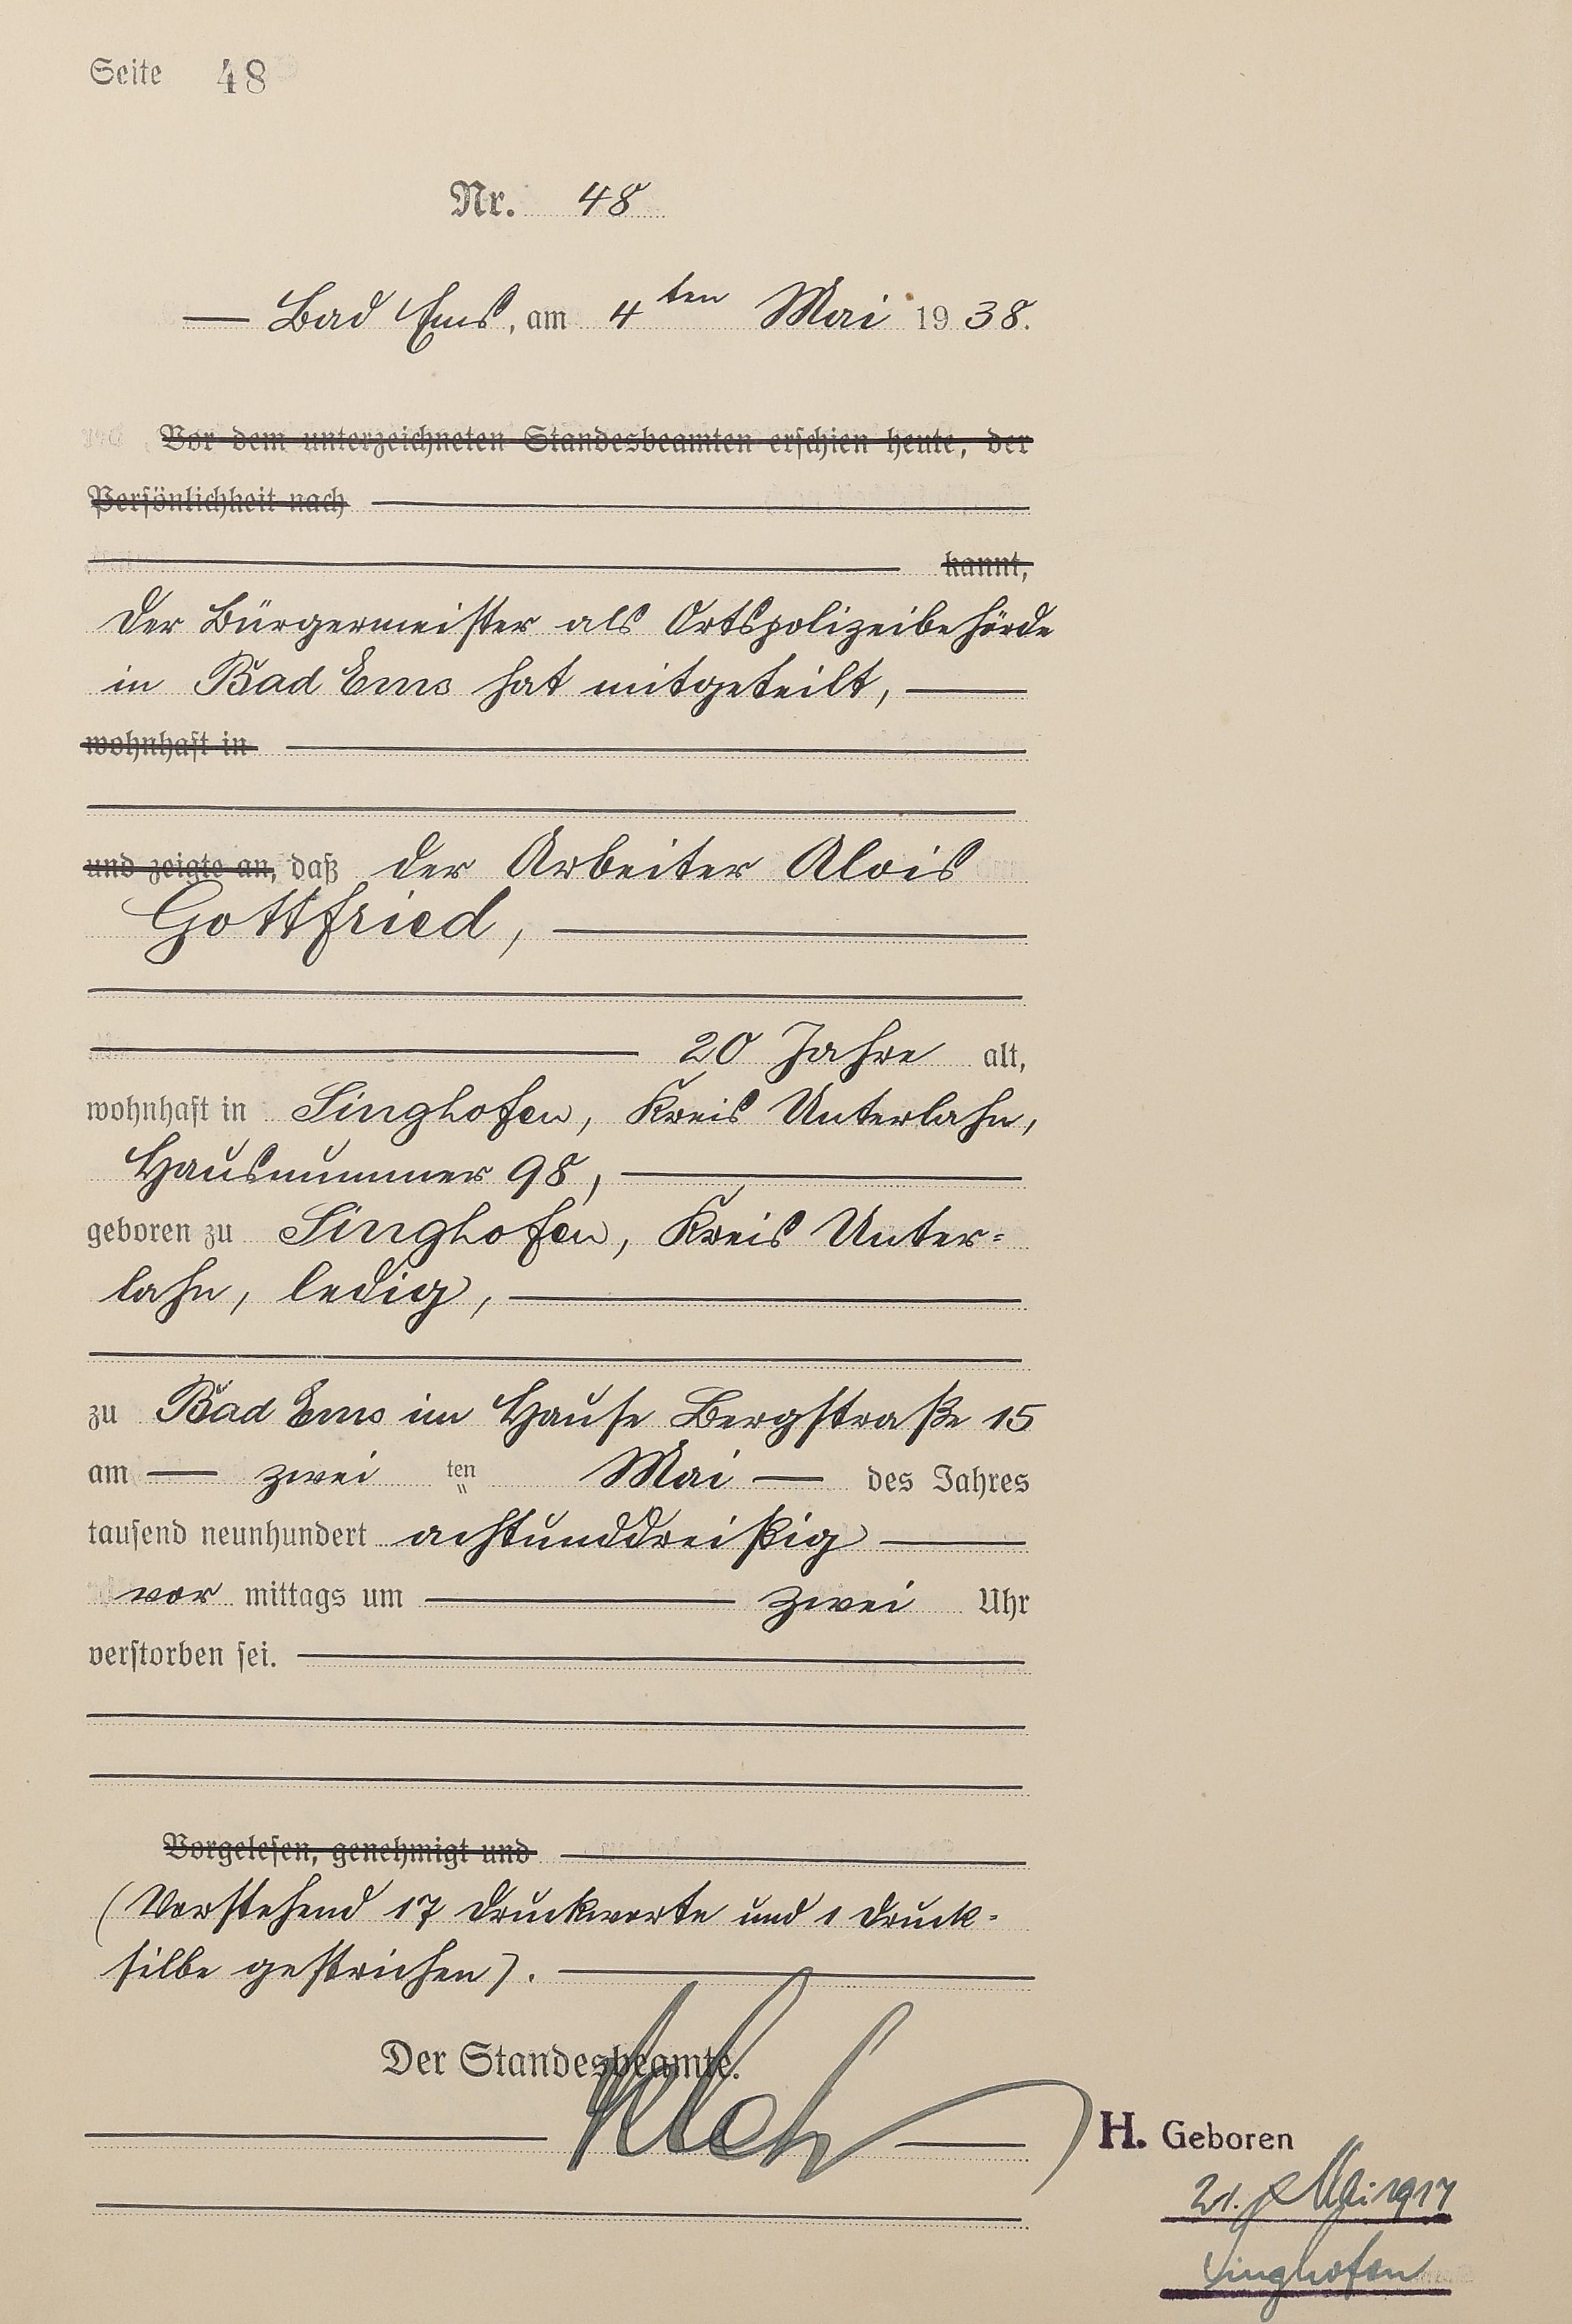 Seite 48
Nr. 48
Bad Ems, am 4ten Mai 1938.
Vor dem unterzeichneten Standesbeamten erschien heute, der
Persönlichkeit nach
kannt,
Der Bürgermeister als Ortspolizeibehörde
in Bad Ems hat mitgeteilt,
wohnhaft in
und zeigte an, daß der Arbeiter Alois
Gottfried,
20 Jahre alt,
wohnhaft in Singhofen, Kreis Unterlahn,
Hausnummer 98,
geboren zu Singhofen, Kreis Unter-
lahn, ledig,
zu Bad Ems im Hause Bergstraße 15
am zwei ten Mai des Jahres
tausend neunhundert achtunddreißig
vor mittags um zwei Uhr
verstorben sei.
Vorgelesen, genehmigt und
(Vorstehend 17 Druckworte und 1 Druck-
silbe gestrichen).
Der Standesbeamte.
H. Geboren
21. Mai 1917
Singhofen